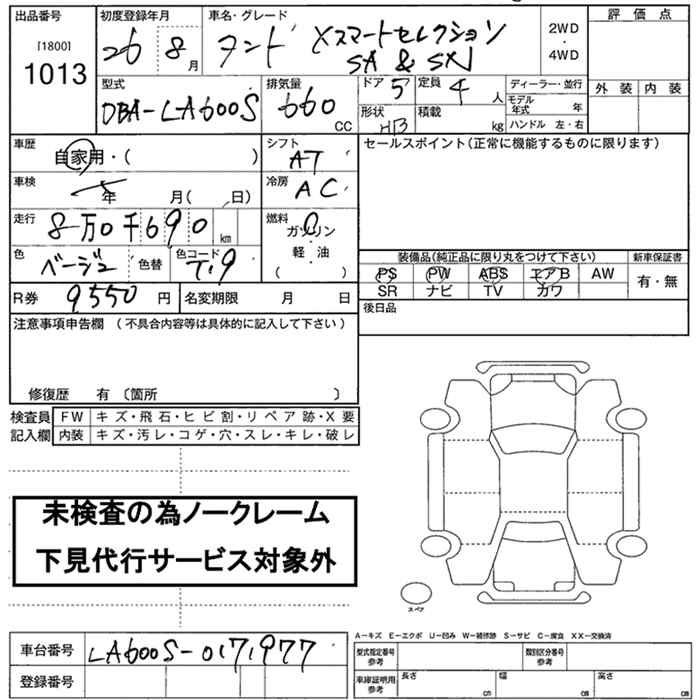 出品番号 初度登録年月 車名・グレード 評価点
[1800] 1013 26 8月 タント Xスマートセレクション 2WD・4WD
SA & SN
型式 排気量 ドア 5 定員 4人 ディーラー・並行 外装 内装
DBA-LA600S 660CC 形状 HB 積載 kg モデル年式 年
ハンドル 左・右
車歴 自家用・( ) シフト AT セールスポイント(正常に機能するものに限ります)
車検 年 月( 、日) 冷房 AC
走行 8万0千690km 燃料 ガソリン・軽・油( )
色 ベージュ 色替 色コード T.9 装備品(純正品に限り丸をつけて下さい) 新車保証書
PS PW ABS エアB AW 有・無
R券 9,550円 名変期限 月 日 SR ナビ TV カワ
注意事項申告欄 (不具合内容等は具体的に記入して下さい) 後日品
修復歴 有 〔箇所 〕
検査員 FW キズ・飛石・ヒビ割・リペア跡・X要
記入欄 内装 キズ・汚レ・コゲ・穴・スレ・キレ・破レ
未検査の為ノークレーム
下見代行サービス対象外
スペア
A-キズ E-エクボ U-凹み W-補修跡 S-サビ C-腐食 XX-交換済
車台番号 LA600S-0171977 型式指定番号 参考 類別区分番号 参考
登録番号 車庫証明用 参考 長さ cm 幅 cm 高さ cm